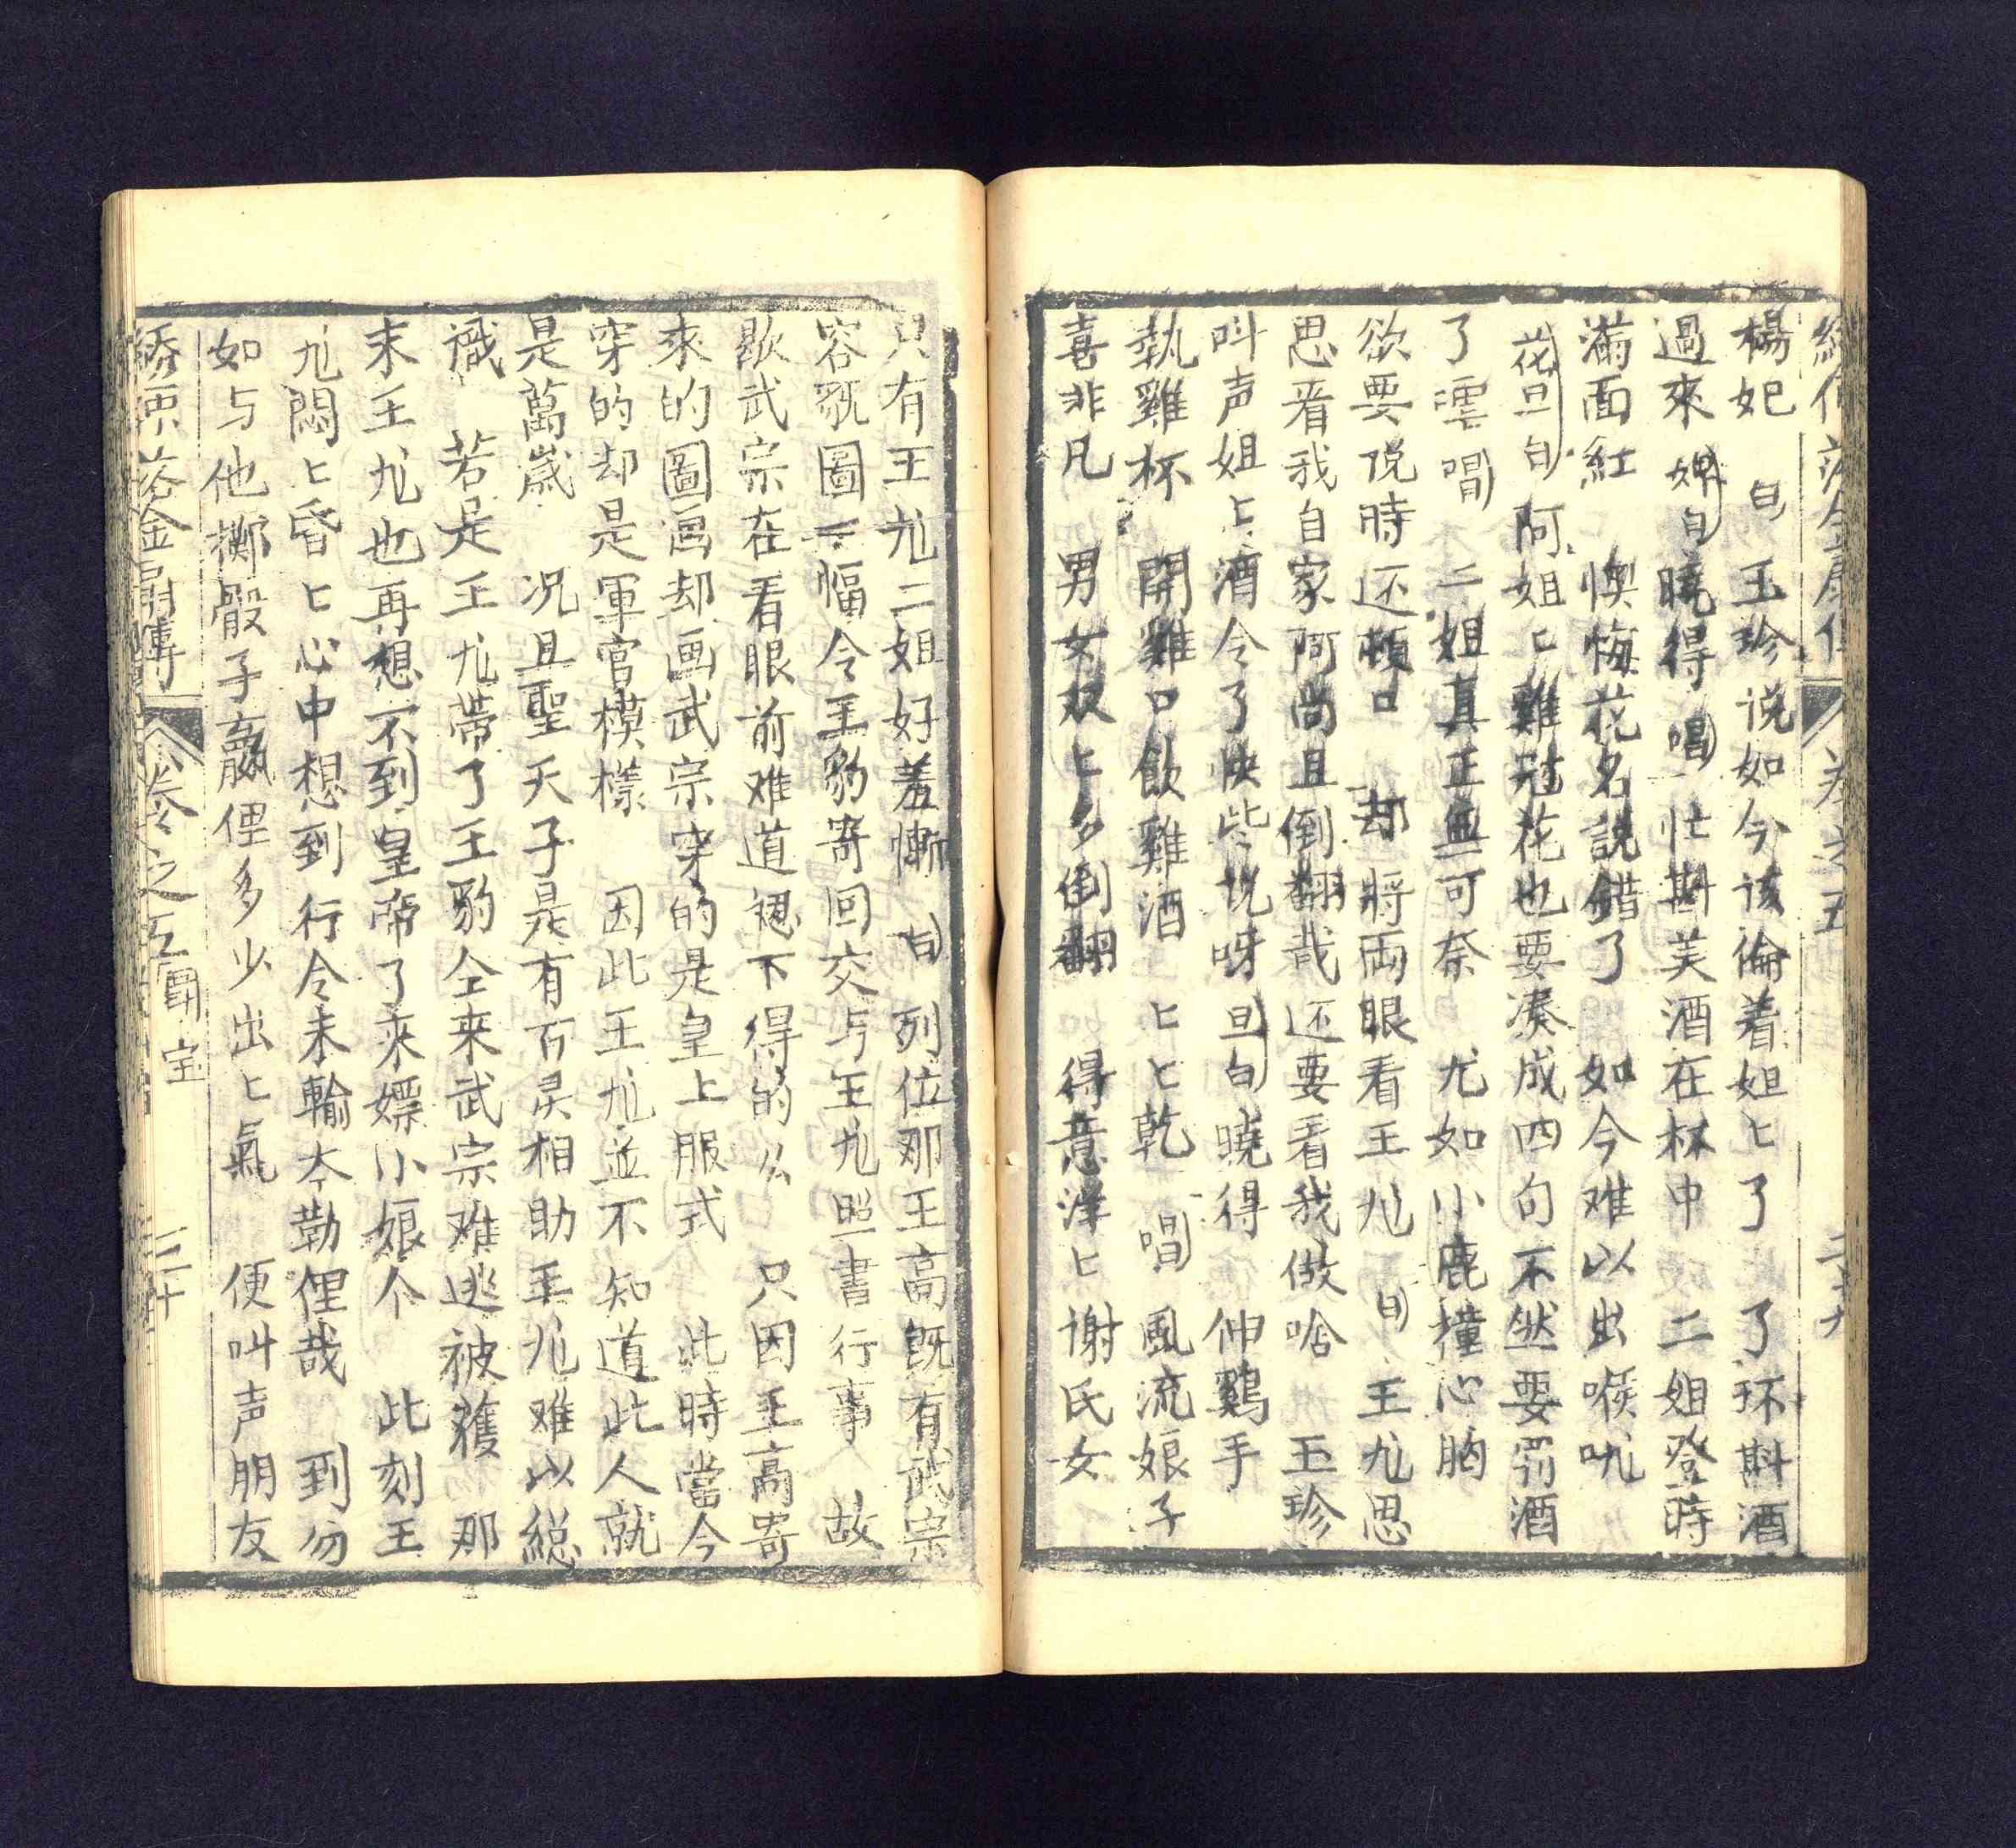 楊妃　白　玉珍说如今该倫着姐〻了　了环斟酒
過來　婢白　曉得　唱　忙斟美酒在杯中　二姐登時
滿面紅　懊悔花名說錯了　如今难以出喉吭
花旦白　阿姐〻雞冠花也要凑成四句不然要罚酒
了嚜　唱　二姐真正無可奈　尤如小鹿撞心胸
欲要说時还頓口　却將両眼看王尨　白　王尨思
思看我自家阿尚且倒翻哉还要看我做啥　玉珍
叫声姐〻酒令了快些说呀　旦白　曉得　伸鷄手
執雞杯　開雞口飲雞酒　〻〻乾　唱　風流娘子
喜非凡　男女双〻多倒翻　得意洋〻謝氏女
只有王尨二姐好羞慚　白　列位那王高既有武宗
容貌圖一幅令王豹寄回交与王尨照書行事　故
歇武宗在看眼前难道認不得的么　只因王高寄
來的圖画却画武宗穿的是皇上服式　此時當今
穿的却是軍官模樣　因此王尨並不知道此人就
是萬嵗　况且聖天子是有百灵相助王尨难以総
識　若是王尨帶了王豹仝来武宗难逃被獲　那
末王尨也再想不到皇帝了來嫖小娘个　此刻王
尨悶〻昏〻心中想到行令末輸夲勒俚哉　到份
如与他擲骰子贏俚多少出〻氣　便叫声朋友
綉像落金扇傳　卷之五　聞宝　三十